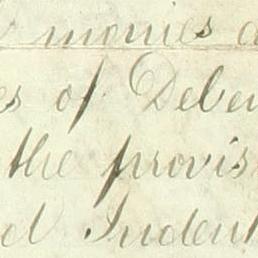 monies a
es of Deben
the provis
d Indent